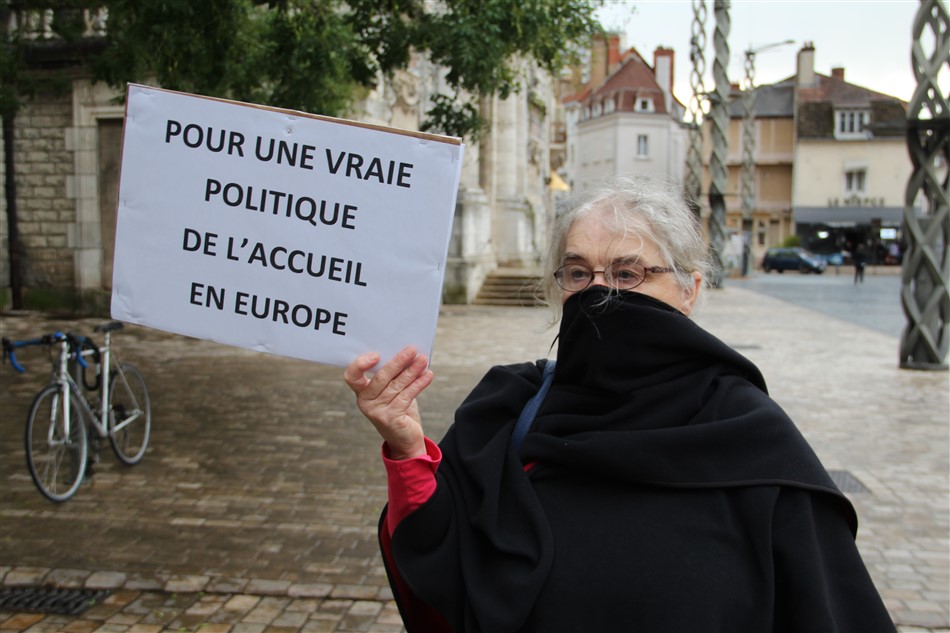 POUR UNE VRAIE
POLITIQUE
DE L'ACCUEIL
EN EUROPE